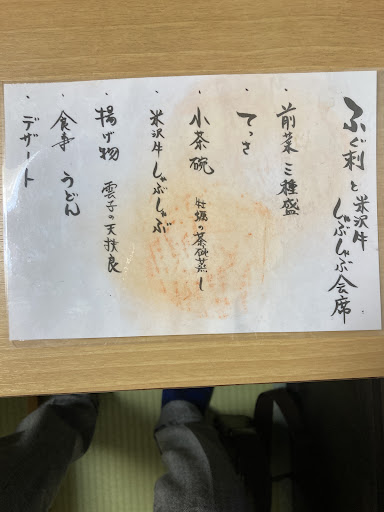 ふぐ刺と米沢牛しゃぶしゃぶ会席
・前菜三種盛
・てっさ
・小茶碗 牡蠣の茶碗蒸し
・米沢牛しゃぶしゃぶ
・揚げ物 雲子の天扶良
・食事 うどん
・デザート